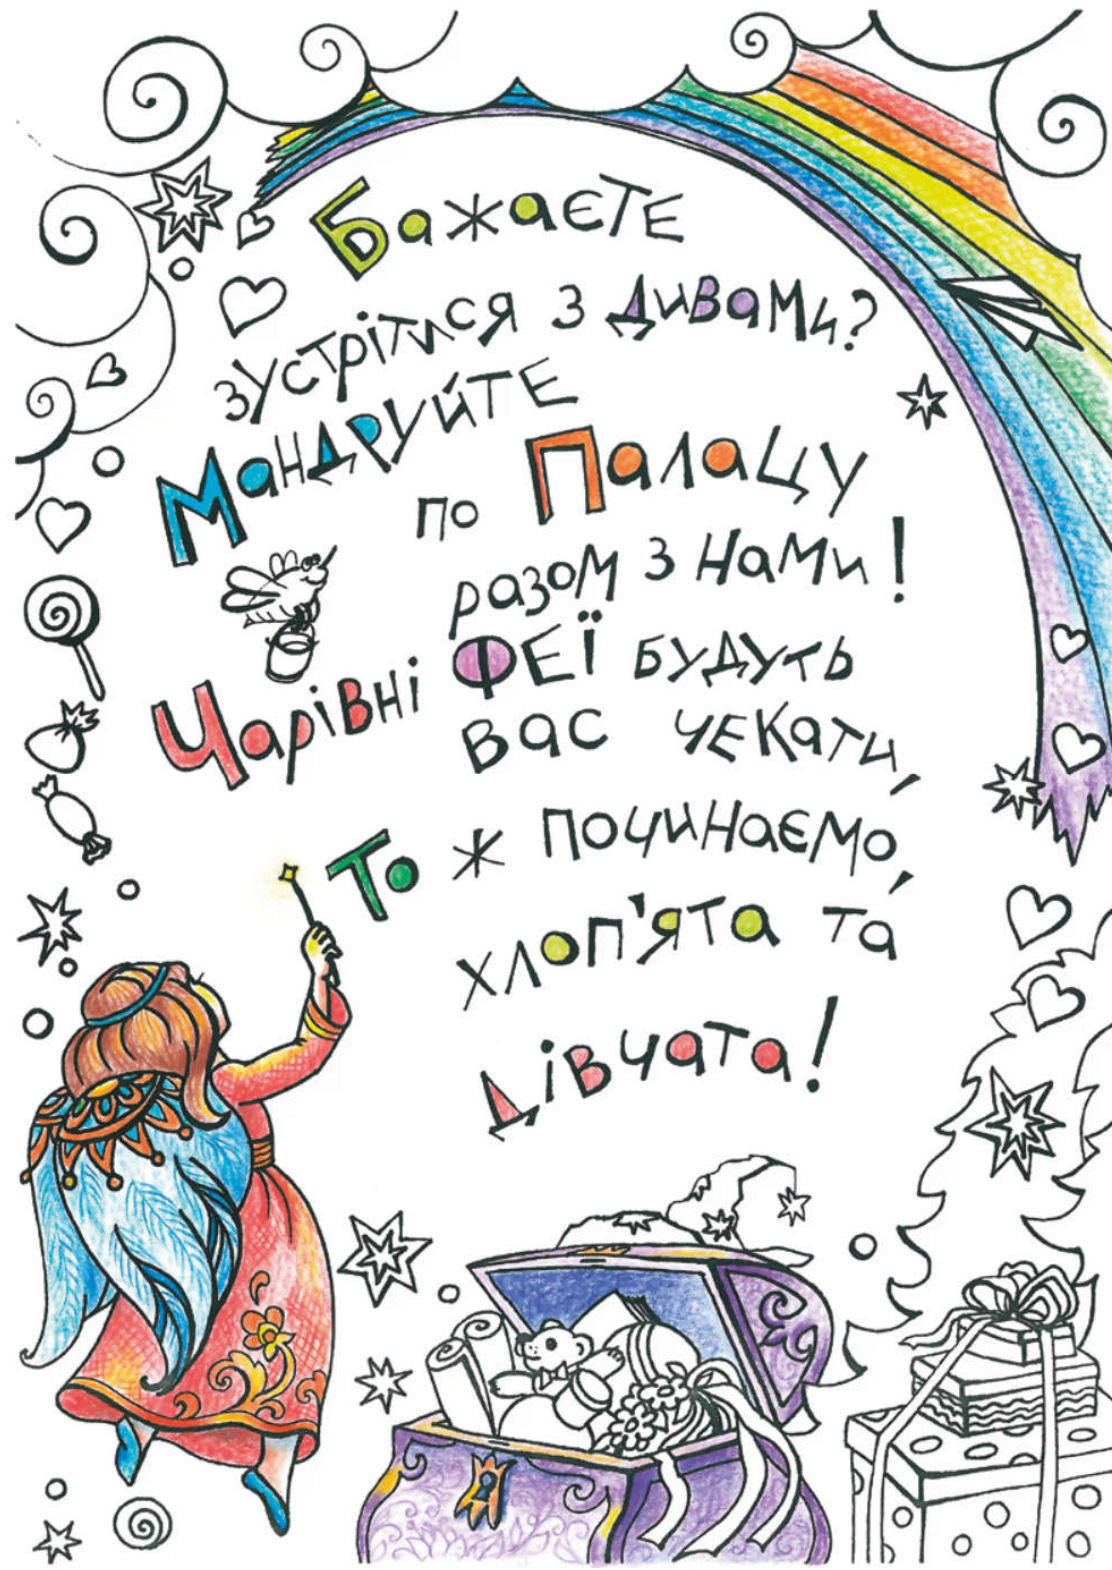 Бажаєте
зустрітися з дивами?
Мандруйте
по Палацу
разом з нами!
Чарівні феї будуть
вас чекати,
То ж починаємо,
хлоп'ята та
дівчата!